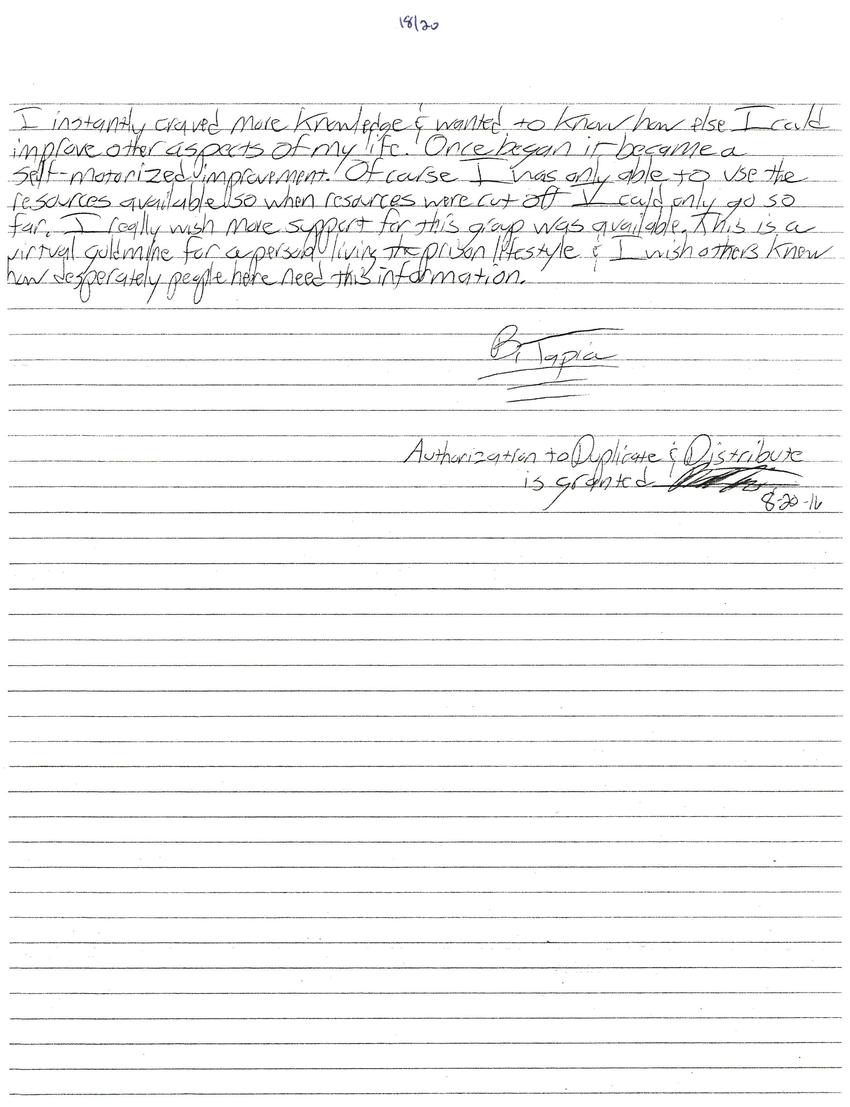 18/20
I instantly craved more Knowledge & wanted to know how else I could
improve other aspects of my life. Once began it became a
self-motorized improvement. Of course I was only able to use the
resources available so when resources were cut off I could only go so
far. I really wish more support for this group was available. This is a
virtual goldmine for a person living the prison lifestyle & I wish others knew
how desperately people here need this information.
B. Tapia
Authorization to Duplicate & Distribute
is granted
8-20-16